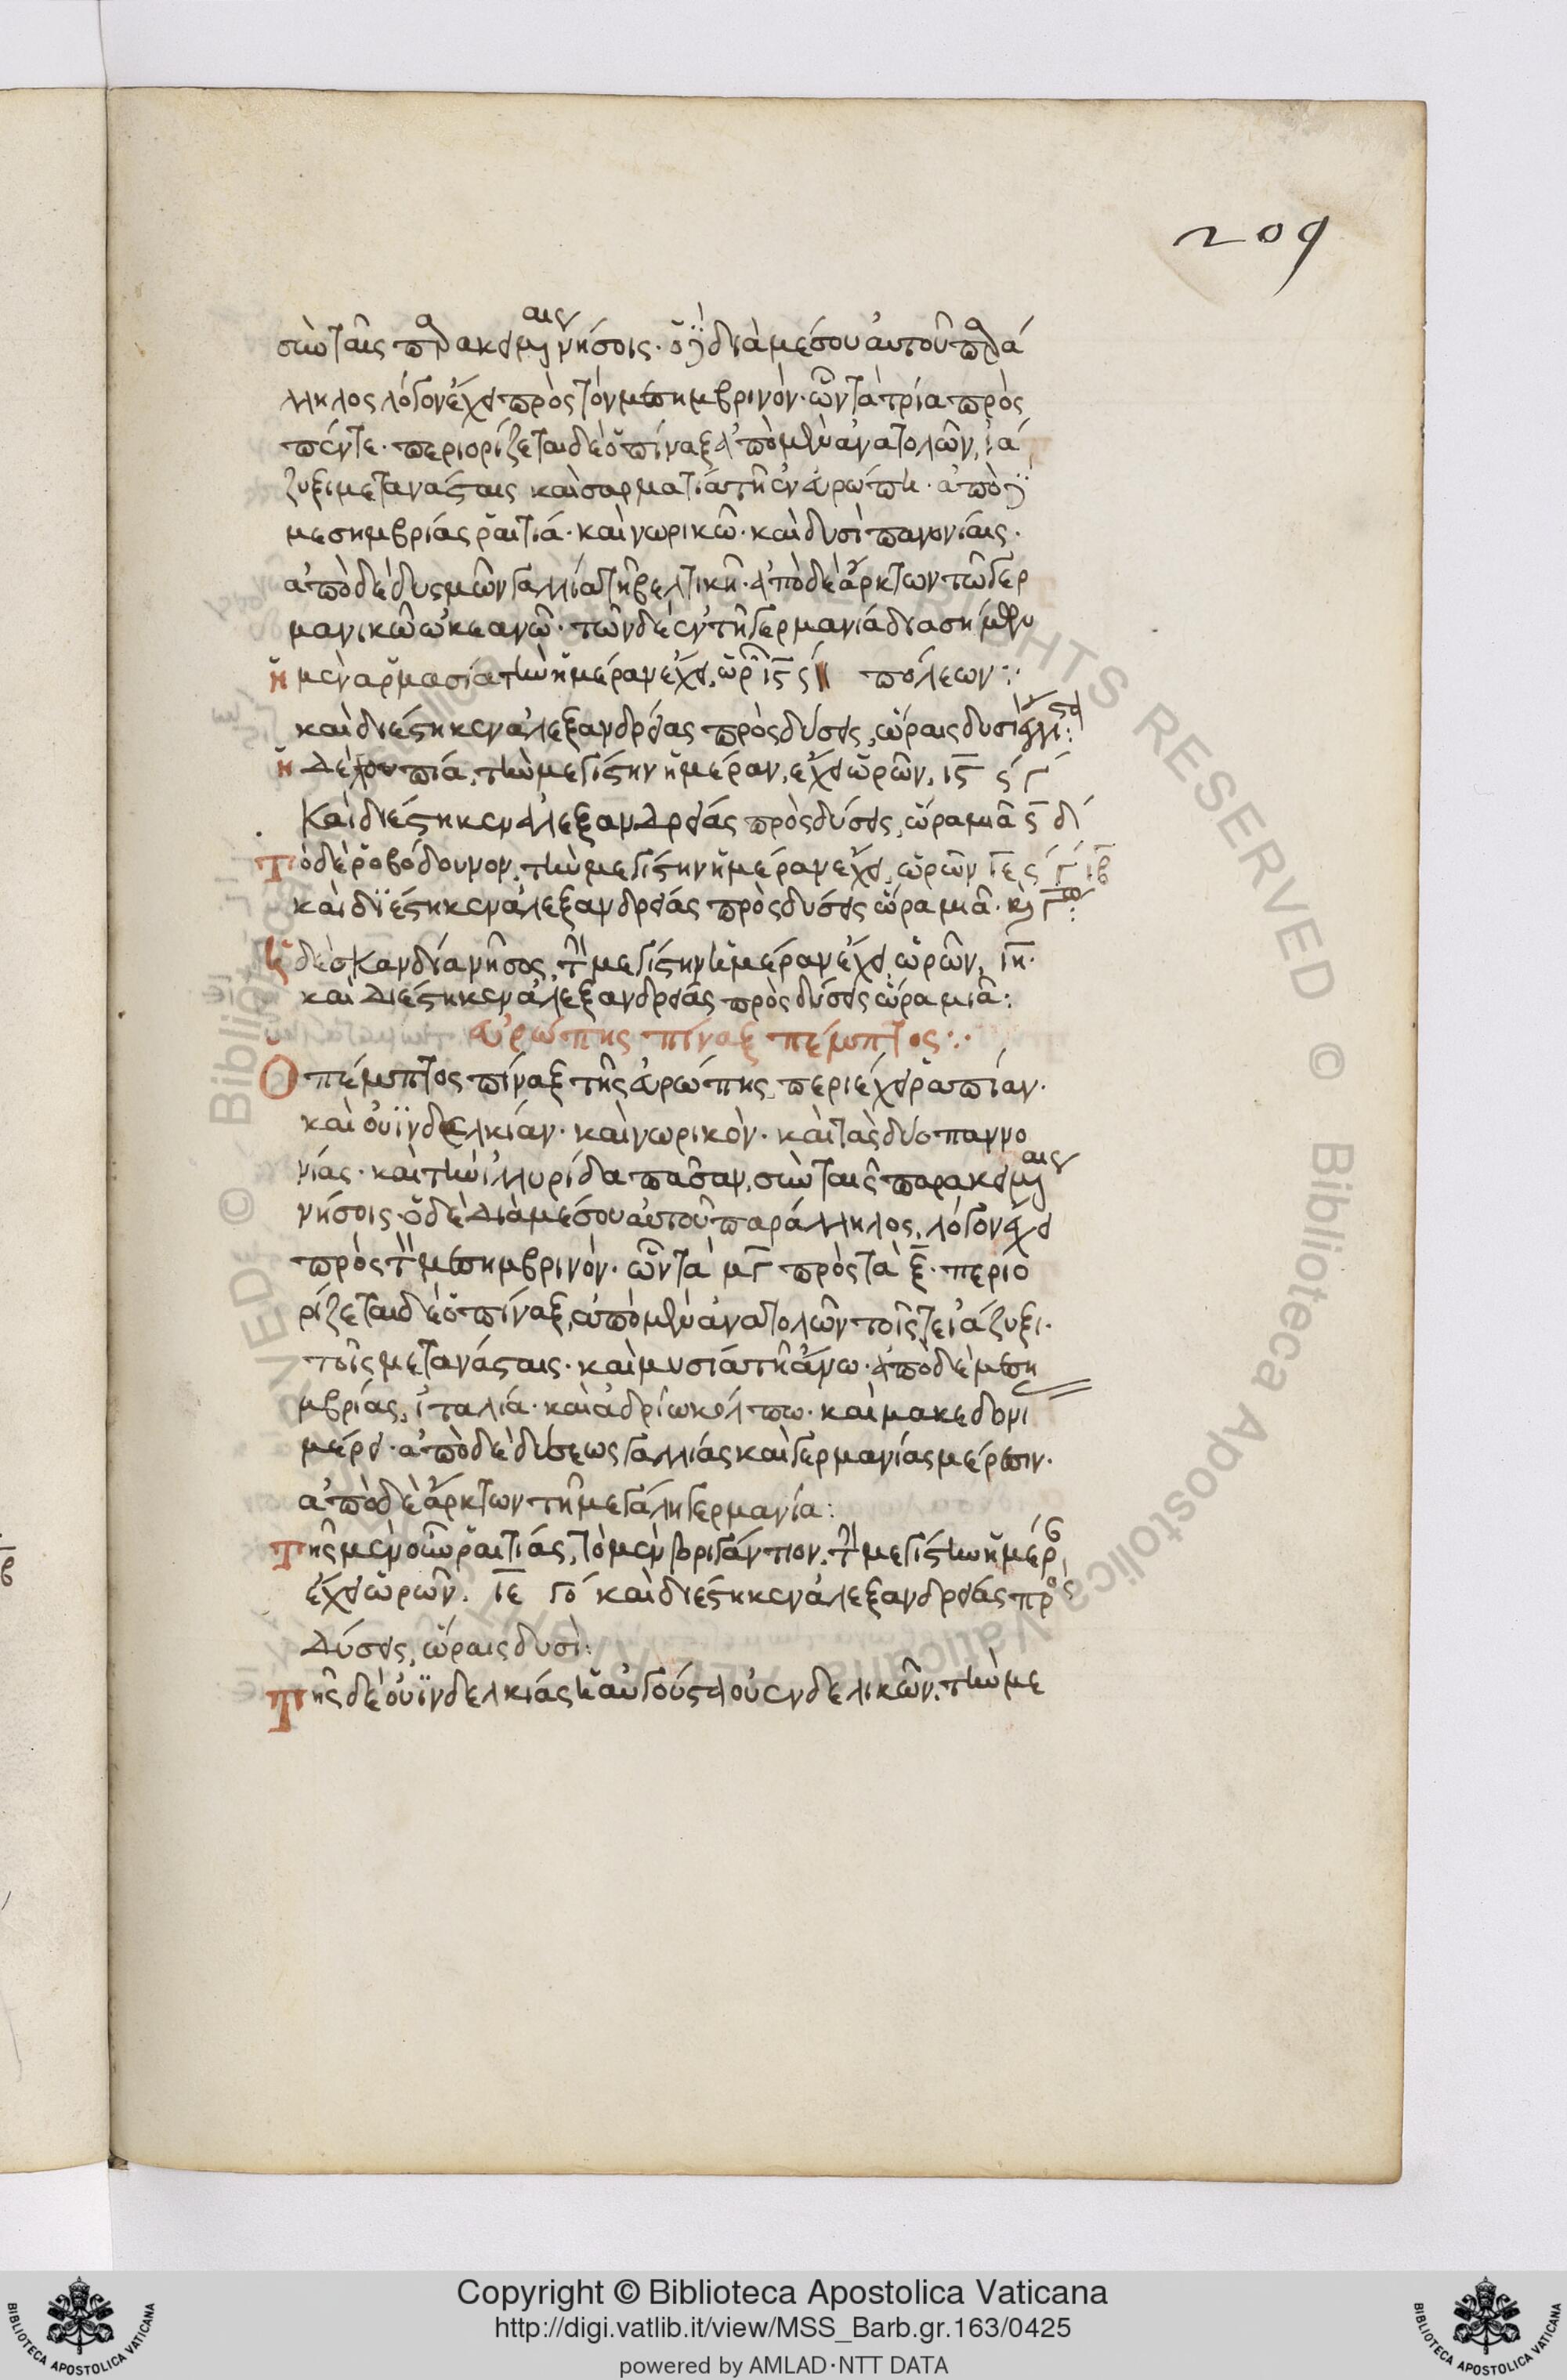 209
σὺν ταῖς παρακειμέναις νήσοις· ὁ δὲ διὰ μέσου αὐτοῦ παρά
λληλος λόγον ἔχει πρὸς τὸν μεσημβρινόν· ὃν τὰ τρία πρὸς
πέντε· περιορίζεται δὲ ὁ πίναξ ἀπὸ μὲν ἀνατολῶν, ἰά
ζυξι μετανάσταις καὶ σαρματία τῇ ἐν εὐρώπη· ἀπὸ δὲ
μεσημβρίας ῥαιτία· καὶ νωρικῶ· καὶ δυσὶ πανονίαις·
ἀπὸ δὲ δυσμῶν γαλλία τῇ βελτικῇ· ἀπὸ δὲ ἄρκτων τῶ γερ
μανικῶ ὠκεανῶ· τῶν δὲ ἐν τῇ γερμανία διασήμων
ἡ μὲν ἀμασία τὴν ἡμέραν ἔχει, ὡρ ις ϛ πόλεων:·
καὶ διέστηκεν ἀλεξανδρείας πρὸς δύσεις, ὥραις δυσὶ
ἡ δὲ λουπία, τὴν μεγίστην ἡμέραν, ἔχει ὡρῶν, ις ϛ γ
Καὶ διέστηκεν ἀλεξανδρείας πρὸς δύσεις, ὥρα μιᾶ ϛ δ
Τὸ δὲ ῥοβόδουνον, τὴν μεγίστην ἡμέραν ἔχει, ὡρῶν ιε ϛ γ ιβ
καὶ διέστηκεν ἀλεξανδρείας πρὸς δύσεις ὥρα μιᾶ· καὶ γο:
ἡ δὲ σκανδία νῆσος, τὴν μεγίστην ἡμέραν ἔχει ὡρῶν, ιη·
καὶ διέστηκεν ἀλεξανδρείας πρὸς δύσεις ὥρα μιᾶ:
εὐρώπης πίναξ πέμπτος:·
Ὁ πέμπτος πίναξ τῆς εὐρώπης περιέχει ῥαιτίαν·
καὶ οὐϊνδελκίαν· καὶ νωρικὸν· καὶ τὰς δύο παννο
νίας· καὶ τὴν ἰλλυρίδα πᾶσαν, σὺν ταῖς παρακειμέναις
νήσοις· ὁ δὲ διὰ μέσου αὐτοῦ παράλληλος, λόγον ἔχει
πρὸς τὸν μεσημβρινόν· ὃν τὰ μγ πρὸς τὰ ξ· περιο
ρίζεται δὲ ὁ πίναξ, ἀπὸ μὲν ἀνατολῶν τοῖς τε ἰάζυξι·
τοῖς μετανάσταις· καὶ μυσία τῇ ἄνω· ἀπὸ δὲ μεση
μβρίας, ἰταλία· καὶ ἀδρίω κόλπω· καὶ μακεδονι
μέρει· ἀπὸ δὲ δύσεως γαλλίας καὶ γερμανίας μέρεσιν·
ἀπὸ δὲ ἄρκτων τῇ μεγάλη γερμανία:
Τῆς μὲν οὖν ῥαιτίας, τὸ μὲν βριγάντιον, τὴν μεγίστην ἡμέραν
ἔχει ὡρῶν. ιε γο καὶ διέστηκεν ἀλεξανδρείας πρὸς
δύσεις, ὥραις δυσὶ:
Τῆς δὲ οὐϊνδελκίας ἡ αὐγούστα οὐενδελικῶν, τὴν με
Copyright © Biblioteca Apostolica Vaticana
http://digi.vatlib.it/view/MSS_Barb.gr.163/0425
powered by AMLAD·NTT DATA